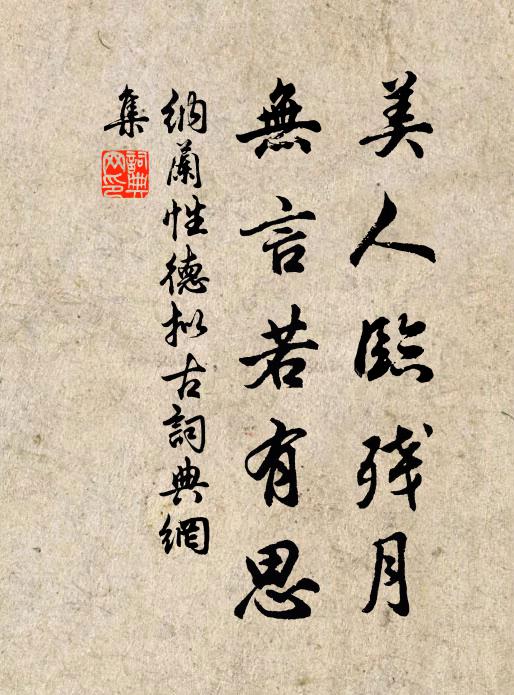 美人臨殘月
無言若有思
納蘭性德擬古詞典網
集
詞典
网印